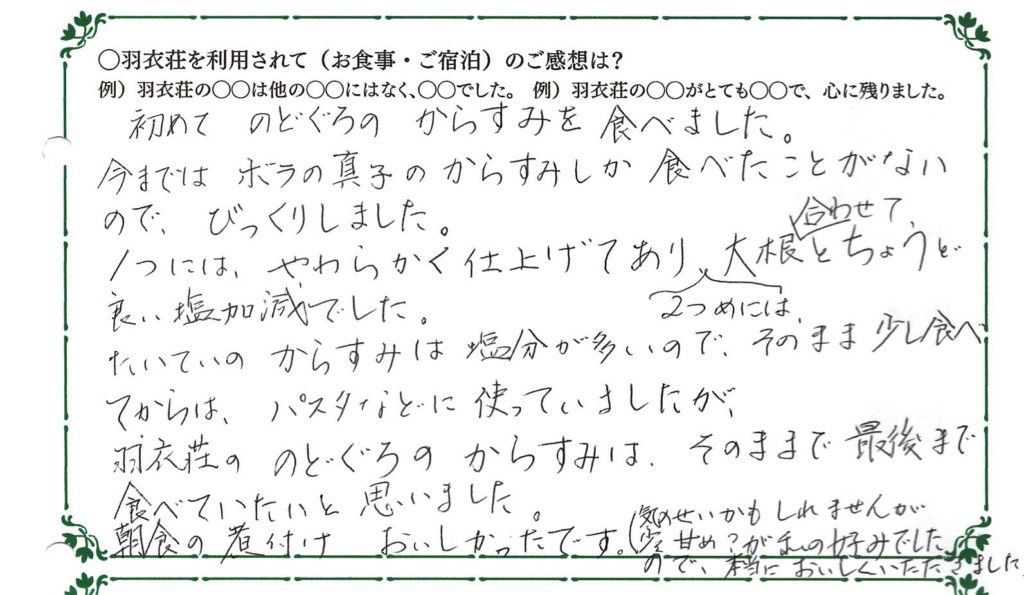 ○羽衣荘を利用されて（お食事・ご宿泊）のご感想は？
例）羽衣荘の○○は他の○○にはなく、○○でした。 例）羽衣荘の○○がとても○○で、心に残りました。
初めて のどぐろの からすみを 食べました。
今までは ボラの真子のからすみしか 食べたことがない
ので、びっくりしました。
合わせて、
1つには、やわらかく仕上げてあり、大根とちょうど
2つめには、
良い塩加減でした。
たいていの からすみは 塩分が多いので、そのまま少し食べ
てからは、パスタなどに使っていましたが、
羽衣荘の のどぐろの からすみは、そのままで最後まで
食べていたいと思いました。
朝食の煮付け おいしかったです。
(気のせいかもしれませんが
少々甘め？が私の好みでした
ので、本当においしくいただきました。